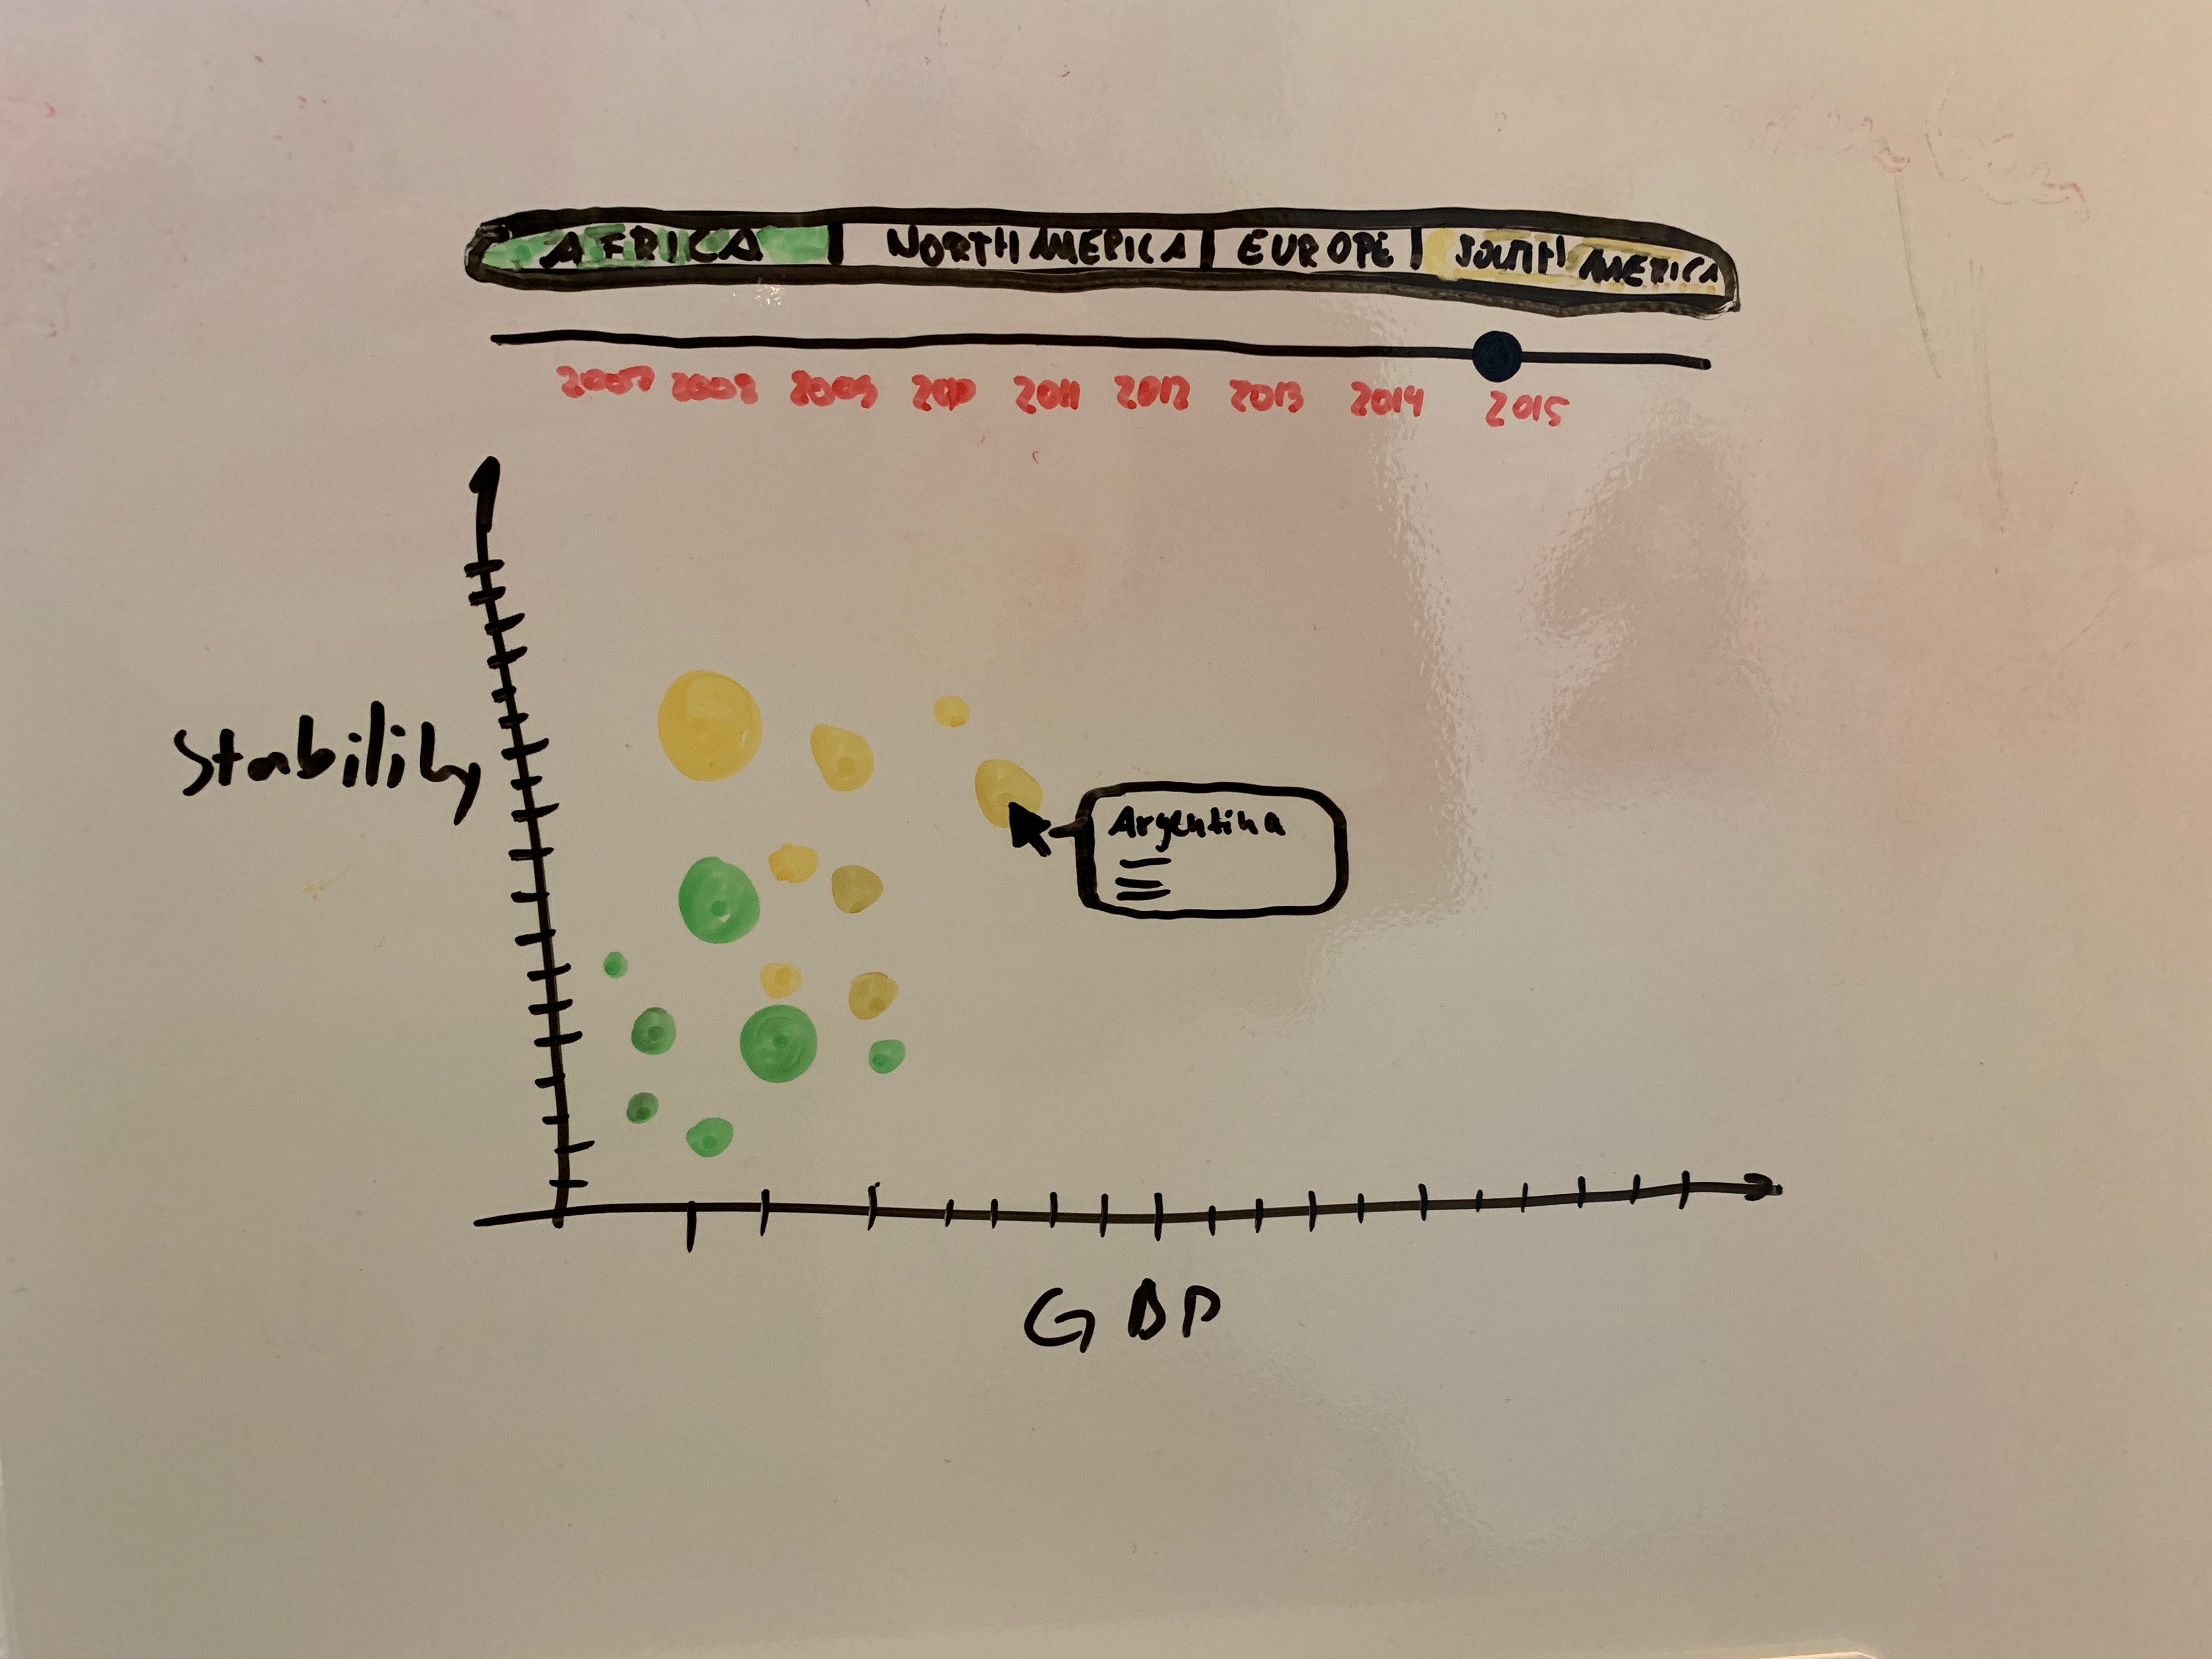 AFRICA NORTH AMERICA EUROPE SOUTH AMERICA
2007 2008 2009 2010 2011 2012 2013 2014 2015
Stability
Argentina
GDP